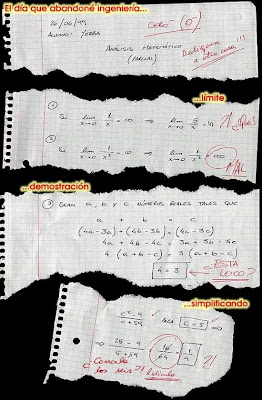 El día que abandoné ingeniería...
26/06/99
Alumno: Yerba
Cero- (0)
Análisis Matemático
(Parcial)
Dedíquese
a otra cosa!!!
...límite
1
Si lim x→0 1/x² = 10 ⇒ lim x→0 5/x² = 14
¿Qué?
2
Si lim x→0 1/x² = ∞ ⇒ lim x→0 1/x² = 100
MAL
...demostración
3 Sean a, b y c números reales tales que
a + b = c
(4a-3a) + (4b-3b) = (4c-3c)
4a + 4b - 4c = 3a + 3b - 3c
4 (a+b-c) = 3 (a+b-c)
4 = 3
¿Está loco?
...simplificando
c² - 9
c + 59
para c = 5 ⇒
⇒ 25 - 9 / 5 + 59 = 16/64 = 1/4
¿Canceló
los seis?! Ridículo